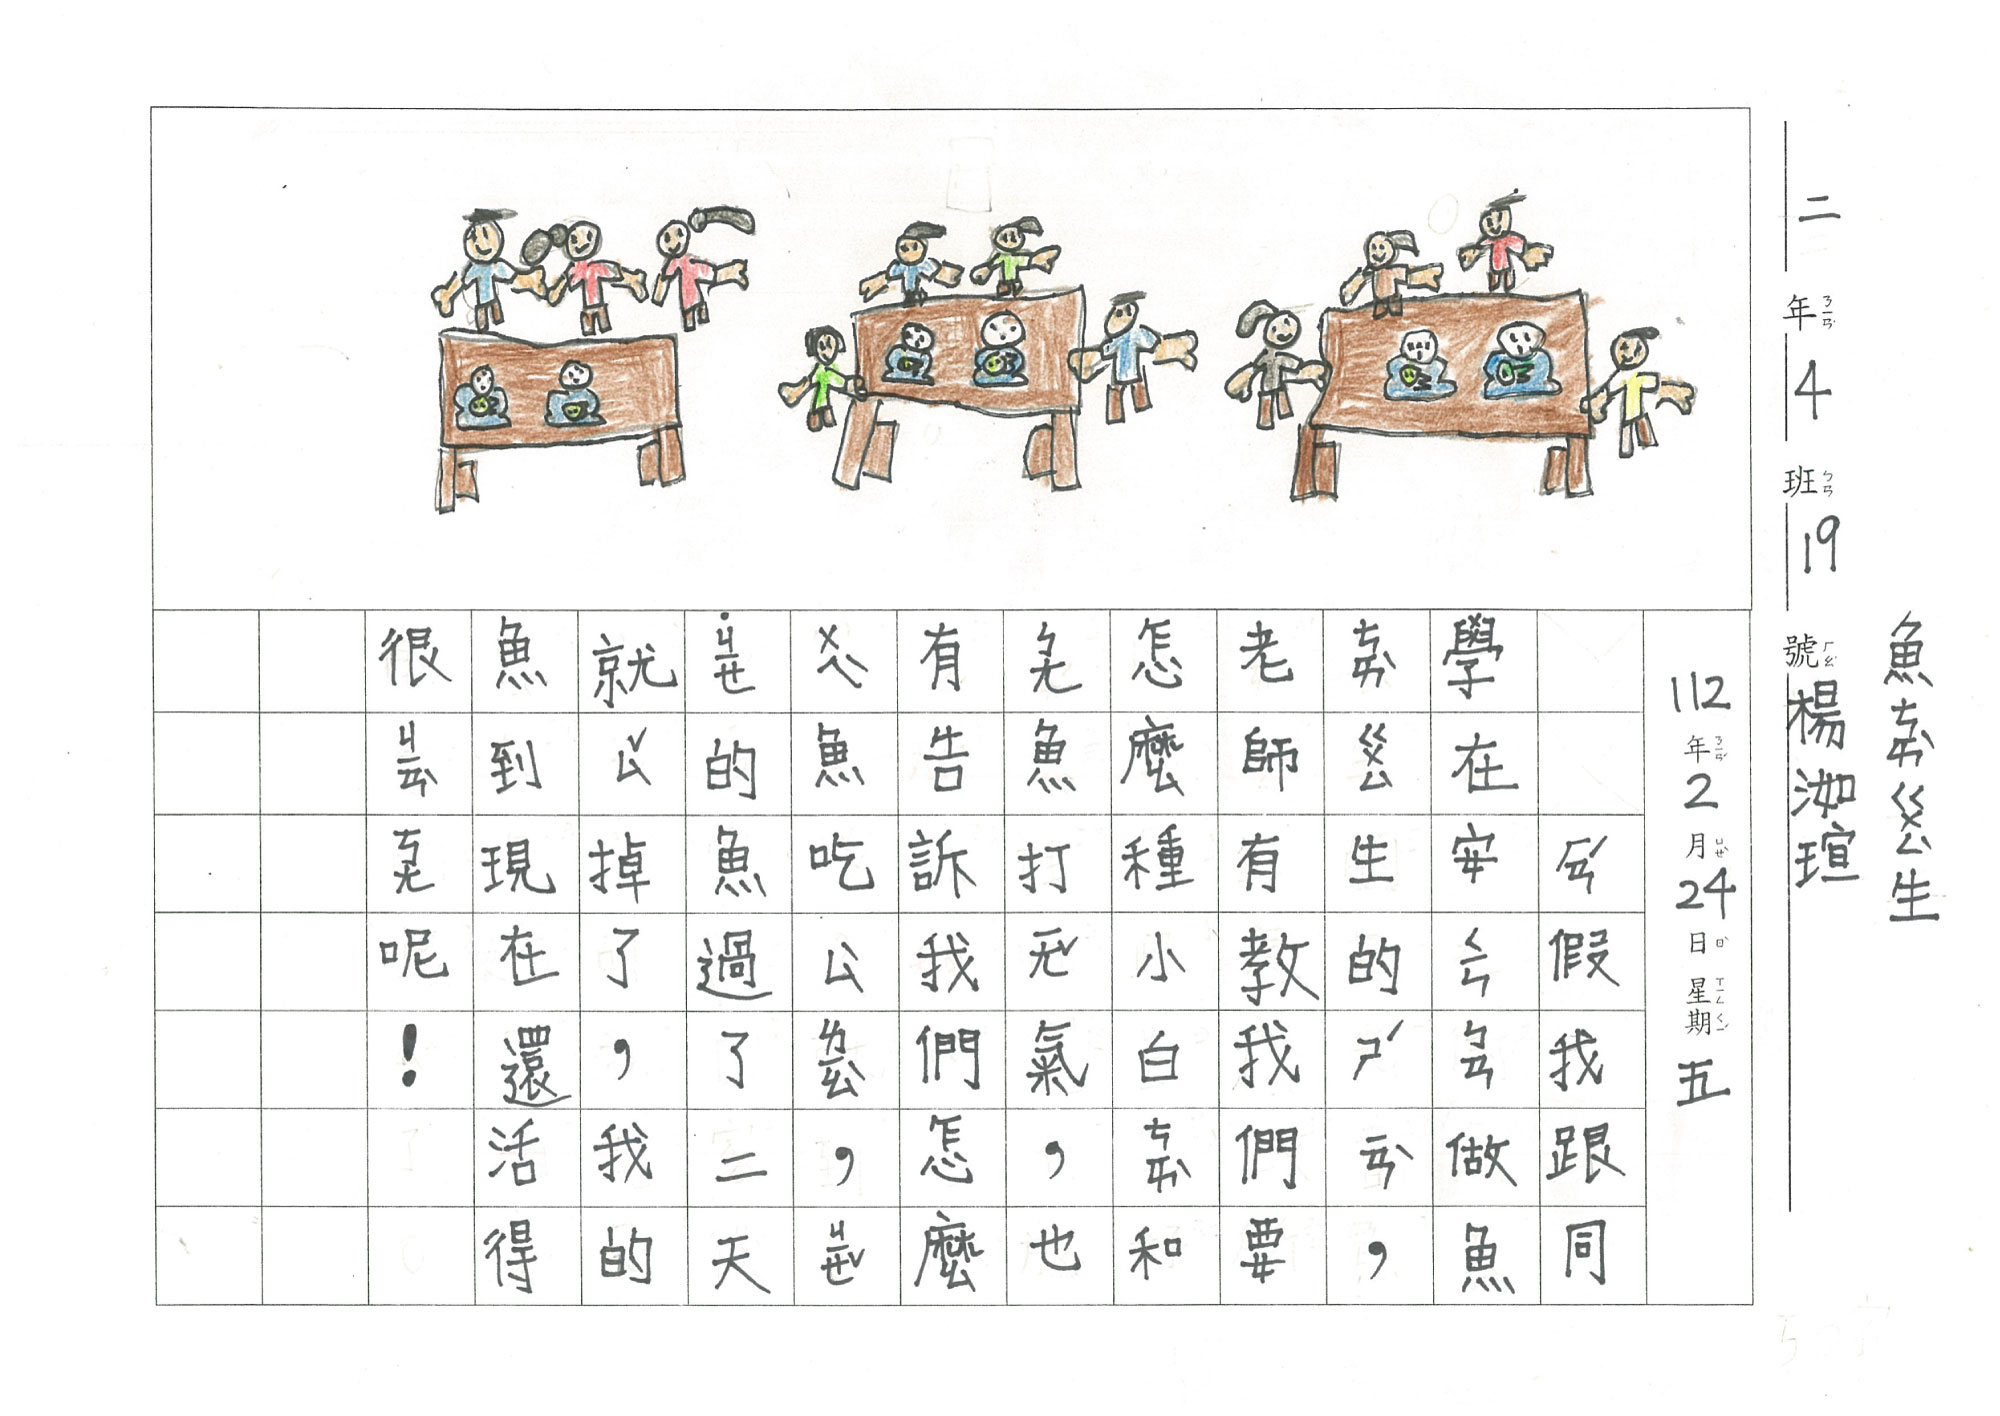 魚ㄘㄞˋㄍㄨㄥ生
二年ㄋㄧㄢˊ4班ㄅㄢ19號ㄏㄠˋ楊洳瑄
112年ㄋㄧㄢˊ2月ㄩㄝˋ24日ㄖˋ星ㄒㄧㄥ期ㄑㄧˊ五
ㄏㄢˊ假我跟同
學在安ㄑㄧㄣㄅㄢ做魚
ㄘㄞˋㄍㄨㄥ生的ㄕˊㄧㄢˋ，
老師有教我們要
怎麼種小白ㄘㄞˋ和
ㄅㄤ魚打ㄧㄤˇ氣，也
有告訴我們怎麼
ㄨㄟˋ魚吃ㄙㄌㄧㄠˋ，ㄐㄧㄝˇ
˙ㄐㄧㄝ的魚過了二天
就ㄙˇ掉了，我的
魚到現在還活得
很ㄐㄧㄢˋㄎㄤ呢！